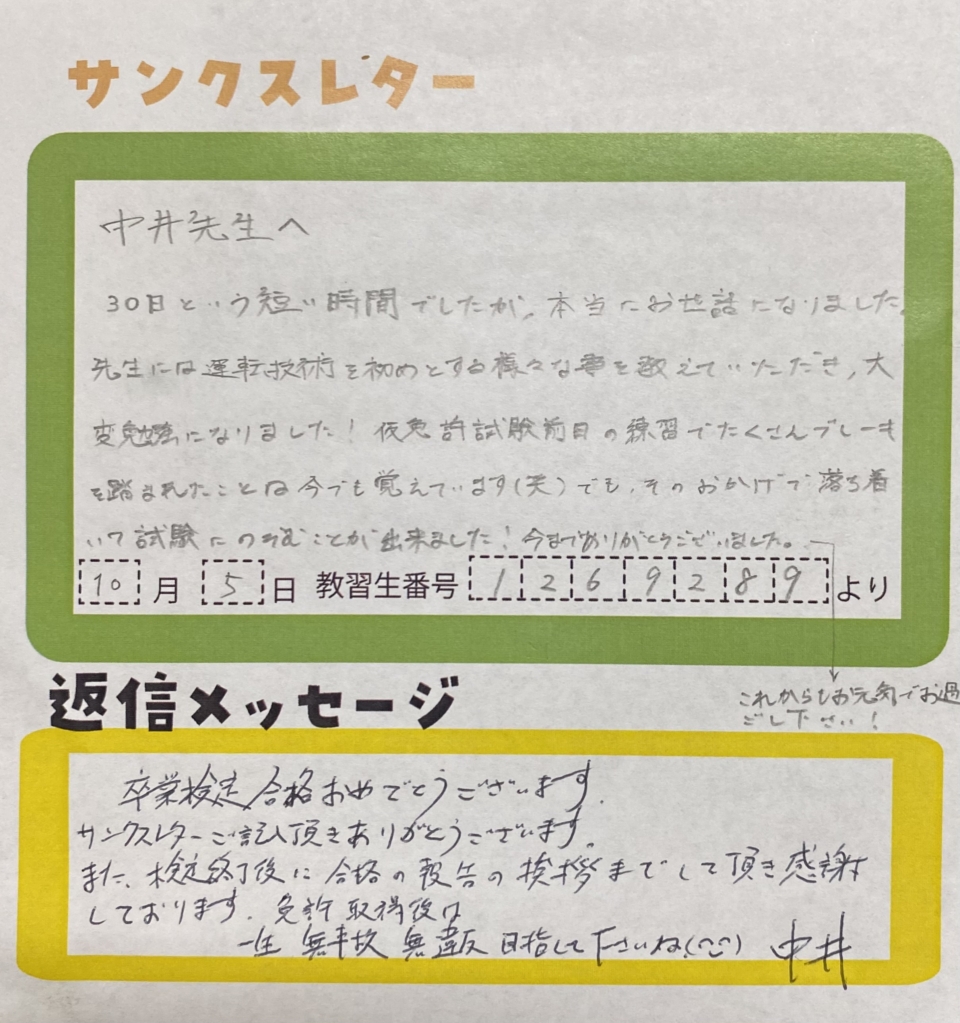 サンクスレター
中井先生へ
30日という短い時間でしたが、本当にお世話になりました。
先生には運転技術を初めとする様々な事を教えていただき、大
変勉強になりました！仮免許試験前日の練習でたくさんブレーキ
を踏まれたことは今でも覚えています(笑)でも、そのおかげで落ち着
いて試験にのぞむことが出来ました！今までありがとうございました。
10月5日 教習生番号 1269289より
これからもお元気でお過
ごし下さい！
返信メッセージ
卒業検定合格おめでとうございます。
サンクスレターご記入頂きありがとうございます。
また、検定終了後に合格の報告の挨拶までして頂き感謝
しております。免許取得後は
一生無事故無違反目指して下さいね(^^) 中井